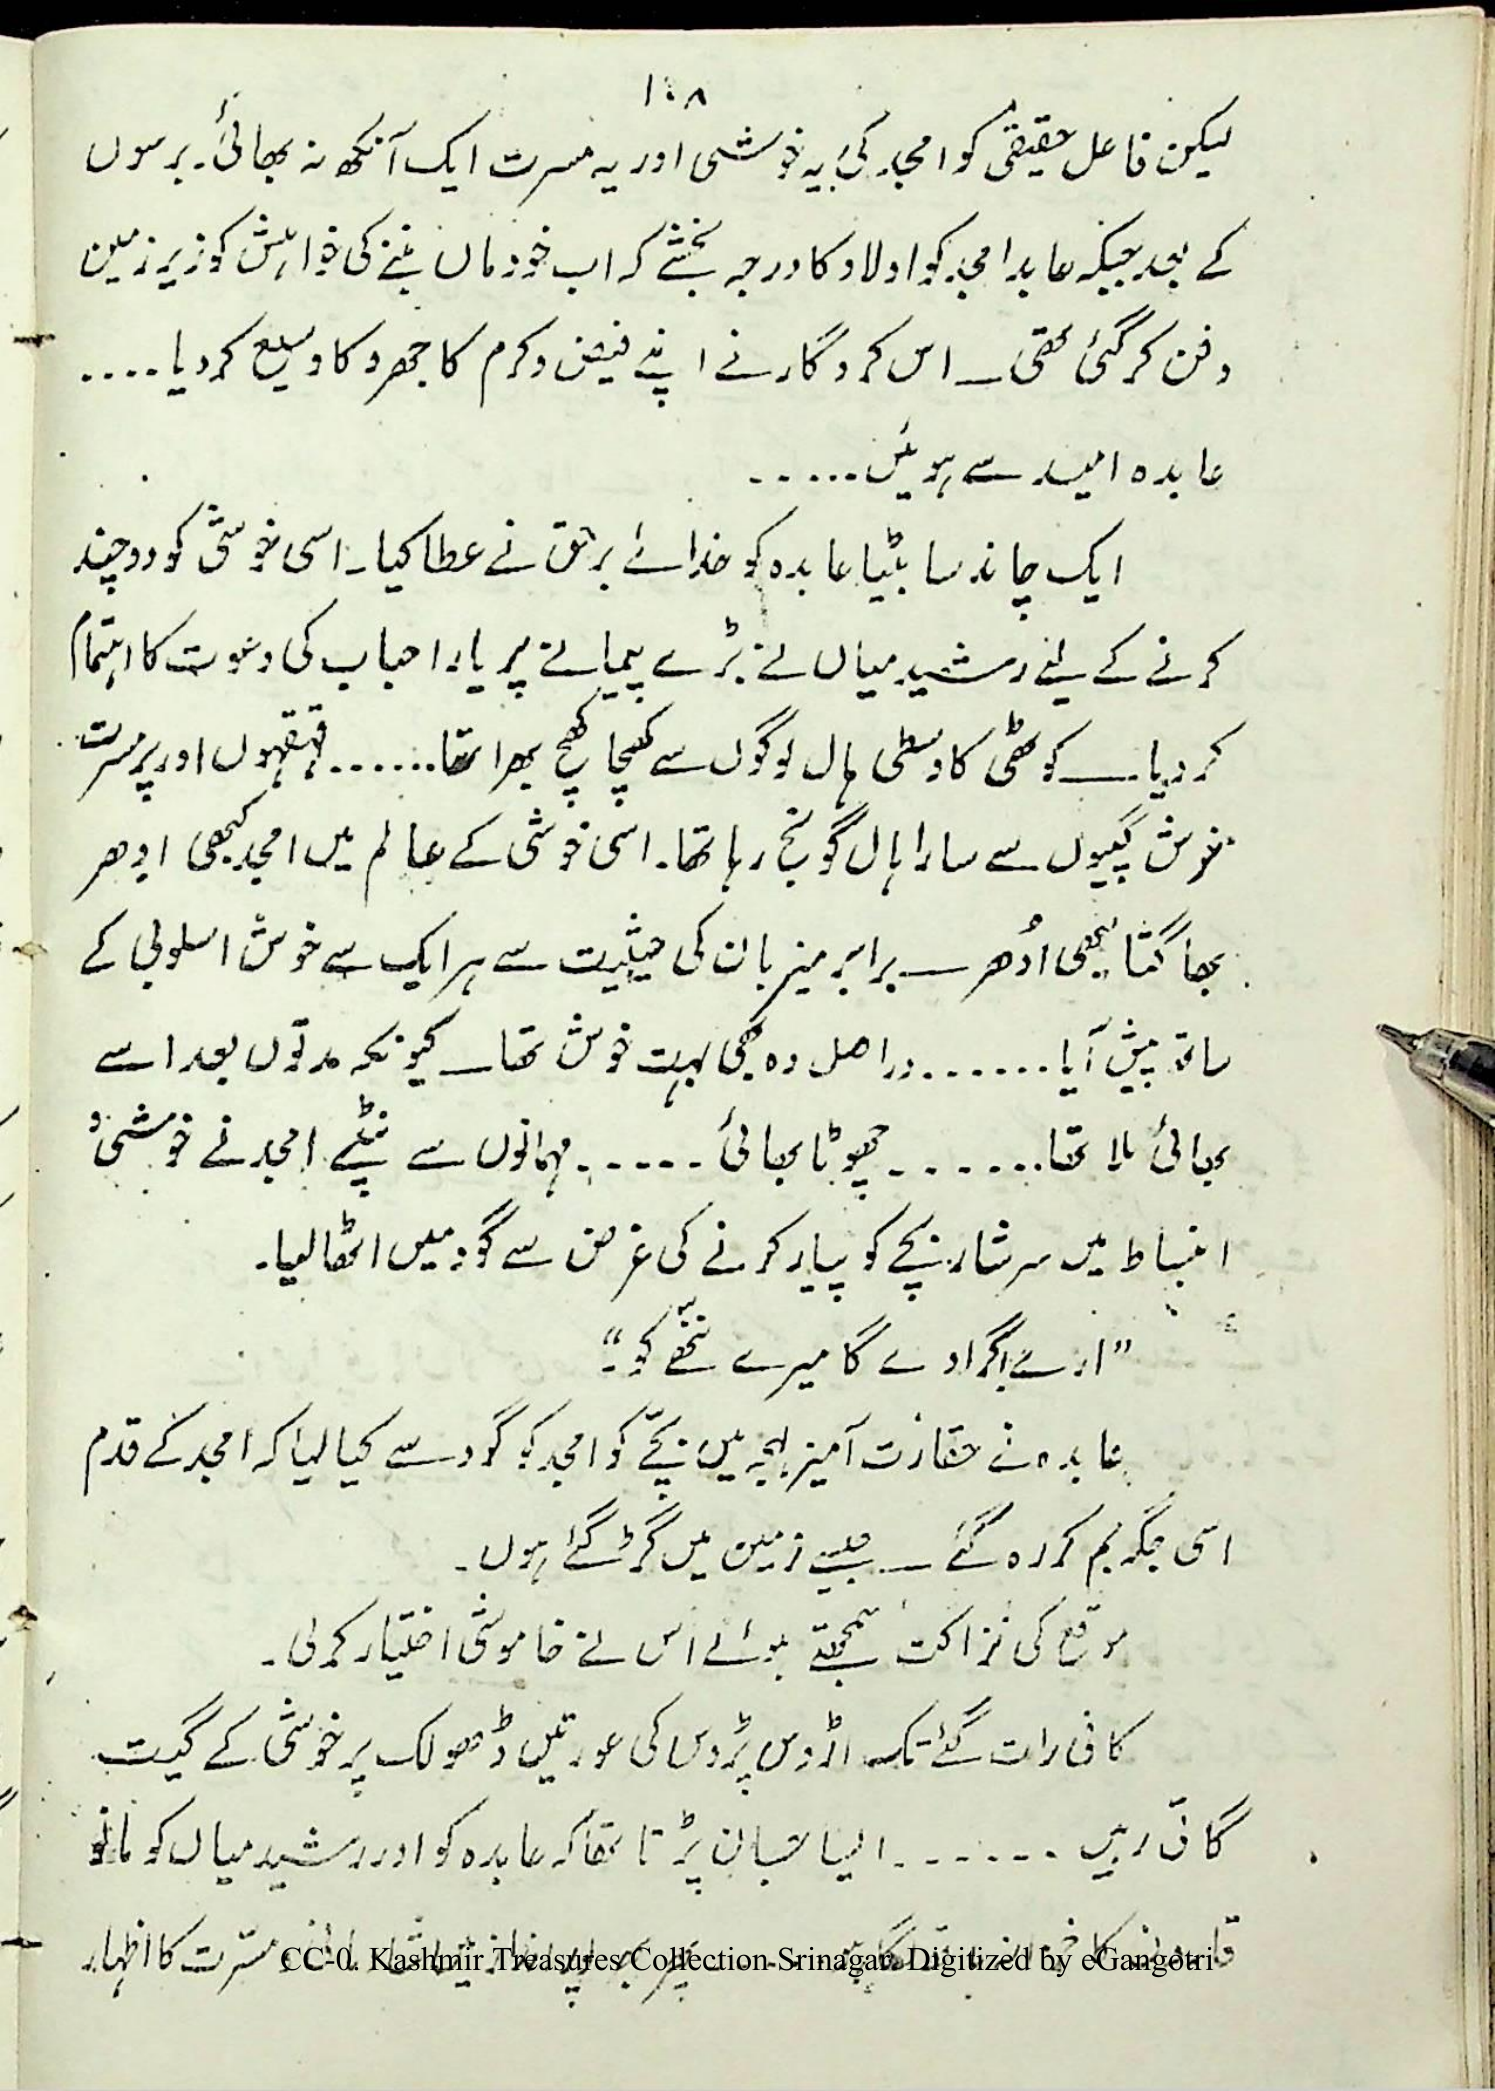 ۱۰۸
لیکن فاعل حقیقی کو امجد کی یہ خوشی اور یہ مسرت ایک آنکھ نہ بھائی۔ برسوں
کے بعد جبکہ عابدہ امجد کو اولاد کا درجہ بخشے کہ اب خود ماں بننے کی خواہش کو زیر زمین
دفن کر گئی تھی ــ اس کردگار نے اپنے فیض و کرم کا جھروکا وسیع کر دیا ....
عابدہ امید سے ہوئیں ......
ایک چاند سا بیٹا عابدہ کو خدائے برحق نے عطا کیا۔ اسی خوشی کو دوچند
کرنے کے لیے رشید میاں نے بڑے پیمانے پر یار احباب کی دعوت کا اہتمام
کر دیا ــ کوٹھی کا وسطی ہال لوگوں سے کھچا کھچ بھرا تھا ...... قہقہوں اور پر مسرت
خوش گپیوں سے سارا ہال گونج رہا تھا۔ اسی خوشی کے عالم میں امجد کبھی ادھر
بھاگتا کبھی اُدھر ــ برابر میزبان کی حیثیت سے ہر ایک سے خوش اسلوبی کے
ساتھ پیش آیا ....... دراصل وہ بھی بہت خوش تھا ــ کیونکہ مدتوں بعد اسے
بھائی ملا تھا ....... چھوٹا بھائی ...... مہمانوں سے نپٹے امجد نے خوشی و
انبساط میں سرشار بچے کو پیار کرنے کی غرض سے گود میں اٹھا لیا۔
”ارے گرا دے گا میرے ننھّے کو۔“
عابدہ نے حقارت آمیز لہجہ میں بچّے کو امجد کو گود سے کیا لیا کہ امجد کے قدم
اسی جگہ جم کر رہ گئے ــ جیسے زمین میں گڑ گئے ہوں۔
موقع کی نزاکت سمجھتے ہوئے اس نے خاموشی اختیار کر لی۔
کافی رات گئے تک اڑوس پڑوس کی عورتیں ڈھولک پر خوشی کے گیت
گاتی رہیں ....... ایسا جان پڑتا تھا کہ عابدہ کو اور رشید میاں کو مانو
قارون کا خزانہ مسرّت کا اظہار
CC-0. Kashmir Treasures Collection Srinagar. Digitized by eGangotri